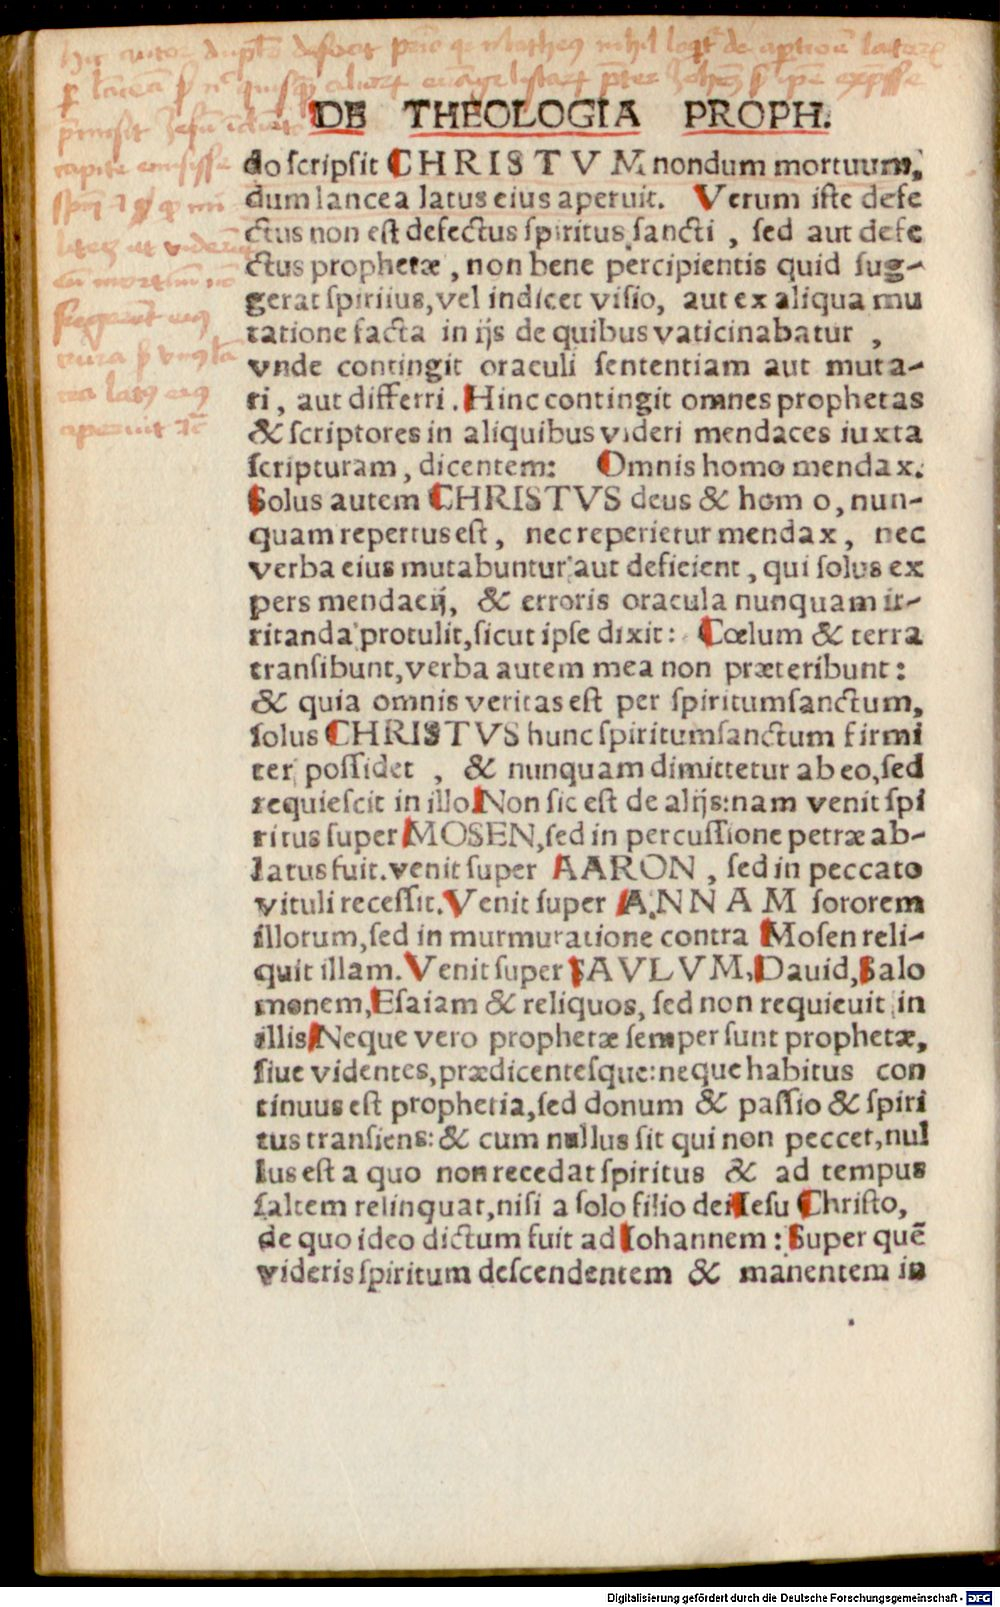 hic autor dupl. defecit
DE THEOLOGIA PROPH.
do scripsit CHRISTVM nondum mortuum,
dum lancea latus eius aperuit. Verum iste defe
ctus non est defectus spiritus sancti, sed aut defe
ctus prophetæ, non bene percipientis quid sug-
gerat spiriius, vel indicet visio, aut ex aliqua mu
tatione facta in ijs de quibus vaticinabatur,
vnde contingit oraculi sententiam aut muta-
ri, aut differri. Hinc contingit omnes prophetas
& scriptores in aliquibus videri mendaces iuxta
scripturam, dicentem: Omnis homo mendax.
Solus autem CHRISTVS deus & homo, nun-
quam repertus est, nec reperietur mendax, nec
verba eius mutabuntur aut deficient, qui solus ex
pers mendacij, & erroris oracula nunquam ir-
ritanda protulit, sicut ipse dixit: Cœlum & terra
transibunt, verba autem mea non præteribunt:
& quia omnis veritas est per spiritum sanctum,
solus CHRISTVS hunc spiritum sanctum firmi
ter possidet, & nunquam dimittetur ab eo, sed
requiescit in illo. Non sic est de alijs: nam venit spi
ritus super MOSEN, sed in percussione petræ ab-
latus fuit. venit super AARON, sed in peccato
vituli recessit. Venit super ANNAM sororem
illorum, sed in murmuratione contra Mosen reli-
quit illam. Venit super SAVLVM, Dauid, Salo
monem, Esaiam & reliquos, sed non requieuit in
illis. Neque vero prophetæ semper sunt prophetæ,
siue videntes, prædicentesque: neque habitus con
tinuus est prophetia, sed donum & passio & spiri
tus transiens: & cum nullus sit qui non peccet, nul
lus est a quo non recedat spiritus & ad tempus
saltem relinquat, nisi a solo filio dei Iesu Christo,
de quo ideo dictum fuit ad Iohannem: Super quē
videris spiritum descendentem & manentem in
Digitalisierung gefördert durch die Deutsche Forschungsgemeinschaft - DFG